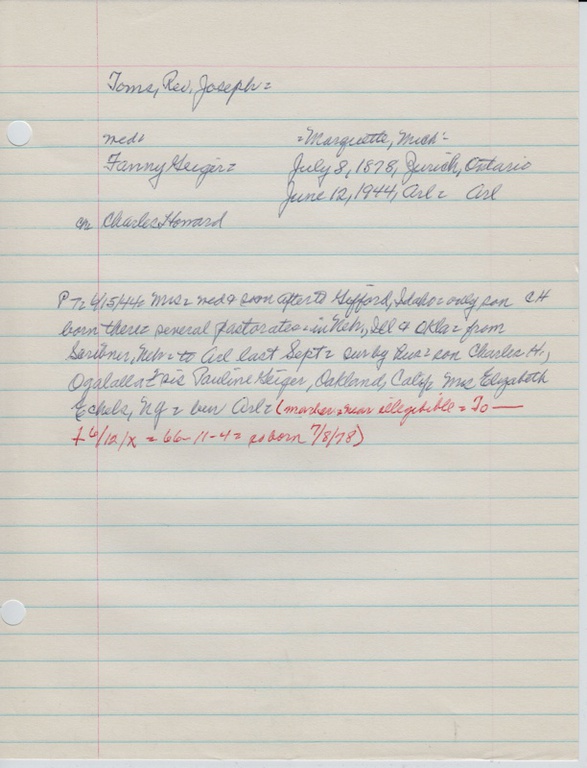 Toms, Rev. Joseph=
med+ =Marquette, Mich-
Fanny Geiger= July 8, 1878, Zurich, Ontario
June 12, 1944, Arl= Arl
ch Charles Howard
PT= 6/15/44= Mrs= med+ soon after to Gifford, Idaho= only son CH
born there= several pastorates= in Nebr, Ill & Okla= from
Scribner, Nebr= to Arl last Sept= sur by Rev= son Charles H.,
Ogalalla + sis Pauline Geiger, Oakland, Calif, Mrs Elizabeth
Echels, = bur Arl= (marker=near illegibible = To—
+ 6/12/x = 66-11-4= so born 7/8/78)